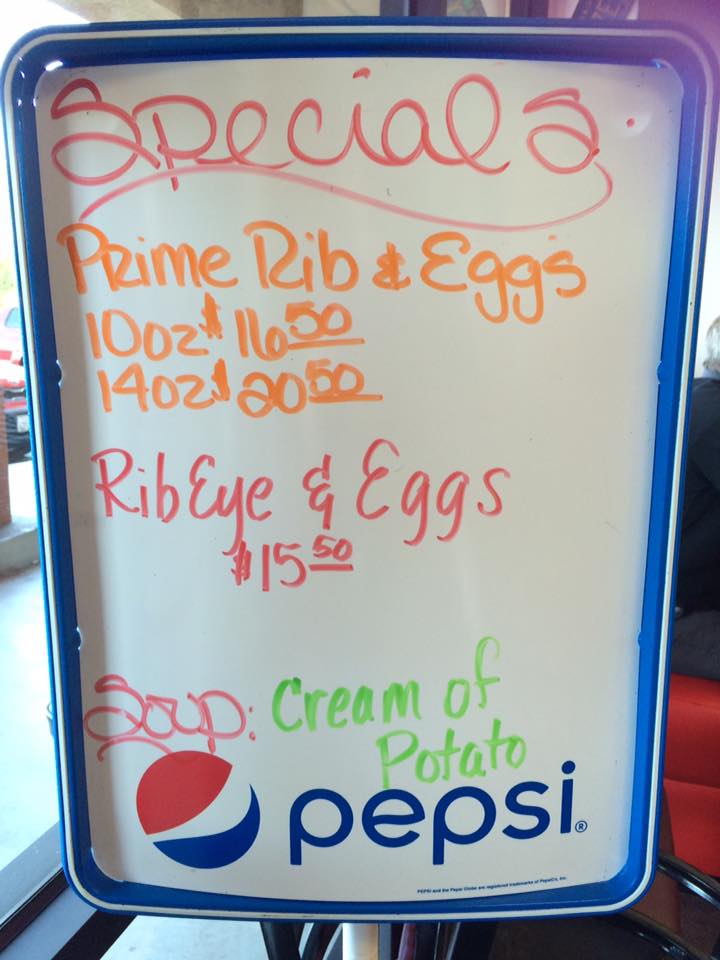 Specials
Prime Rib & Eggs
10oz $16.50
14oz $20.50
RibEye & Eggs
$15.50
Soup: Cream of
Potato
pepsi®
PEPSI and the Pepsi Globe are registered trademarks of PepsiCo, Inc.